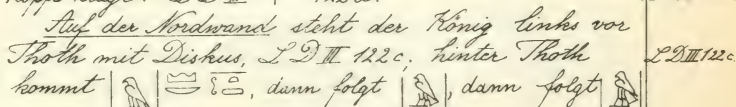 Auf der Nordwand steht der König links vor
Thoth mit Diskus, LD III 122c; hinter Thoth LD III 122c.
kommt , dann folgt , dann folgt